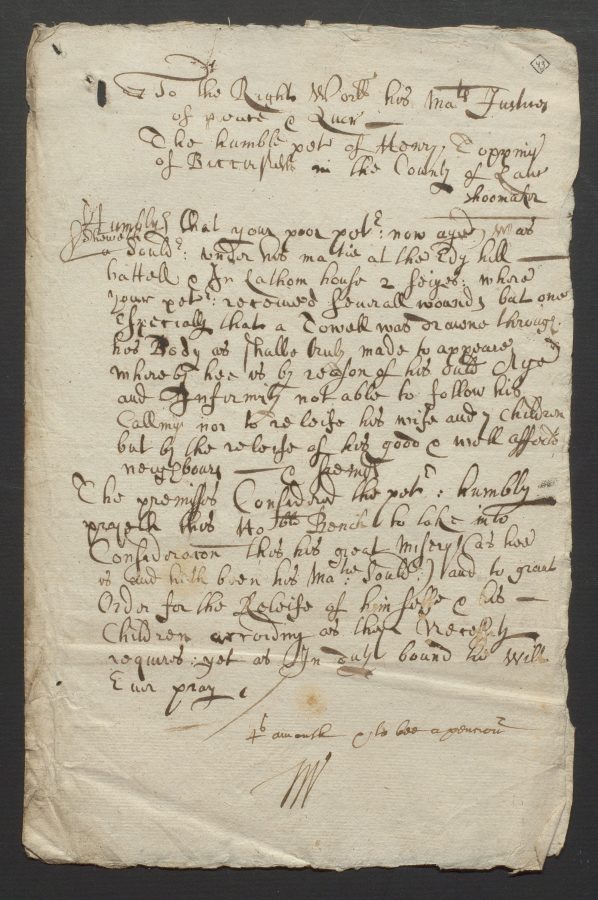 49
To the Right Worll his Mats Justices
of peace & Quor
The humble petr of Henry Toppin
of in the County of Lanc
shoomaker
Humbly
Sheweth
that your poor petr: now aged was
a Souldr: under his matie at the Edg hill
battell & In Lathom house 2 seiges: where
your petr: received severall wounds but one
Especially that a Towell was drawne through
his Body as shalbe truly made to appeare
whereby hee is by reason of his ould Age
and Infirmity not able to follow his
Calling nor to releife his wife and children
but by the releife of his good & well affected
neighbours & freinds
The premisses Considered the petr: humbly
prayeth this Hoble Bench to take into
Consideracon this his great Misery (as hee
is and hath been his Maties Souldr:) and to grant
Order for the Releife of him selfe & his
Children according as their Necessity
requires: yet as In duty bound he Will
Ever pray
4s a month & to bee a pencionr